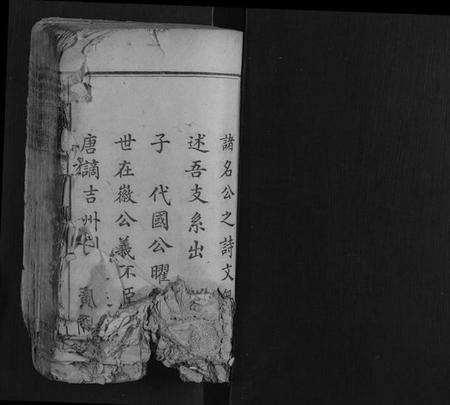 諸名公之詩文
述吾支系出
子 代國公曜
世在徽公義不臣
唐謫吉州